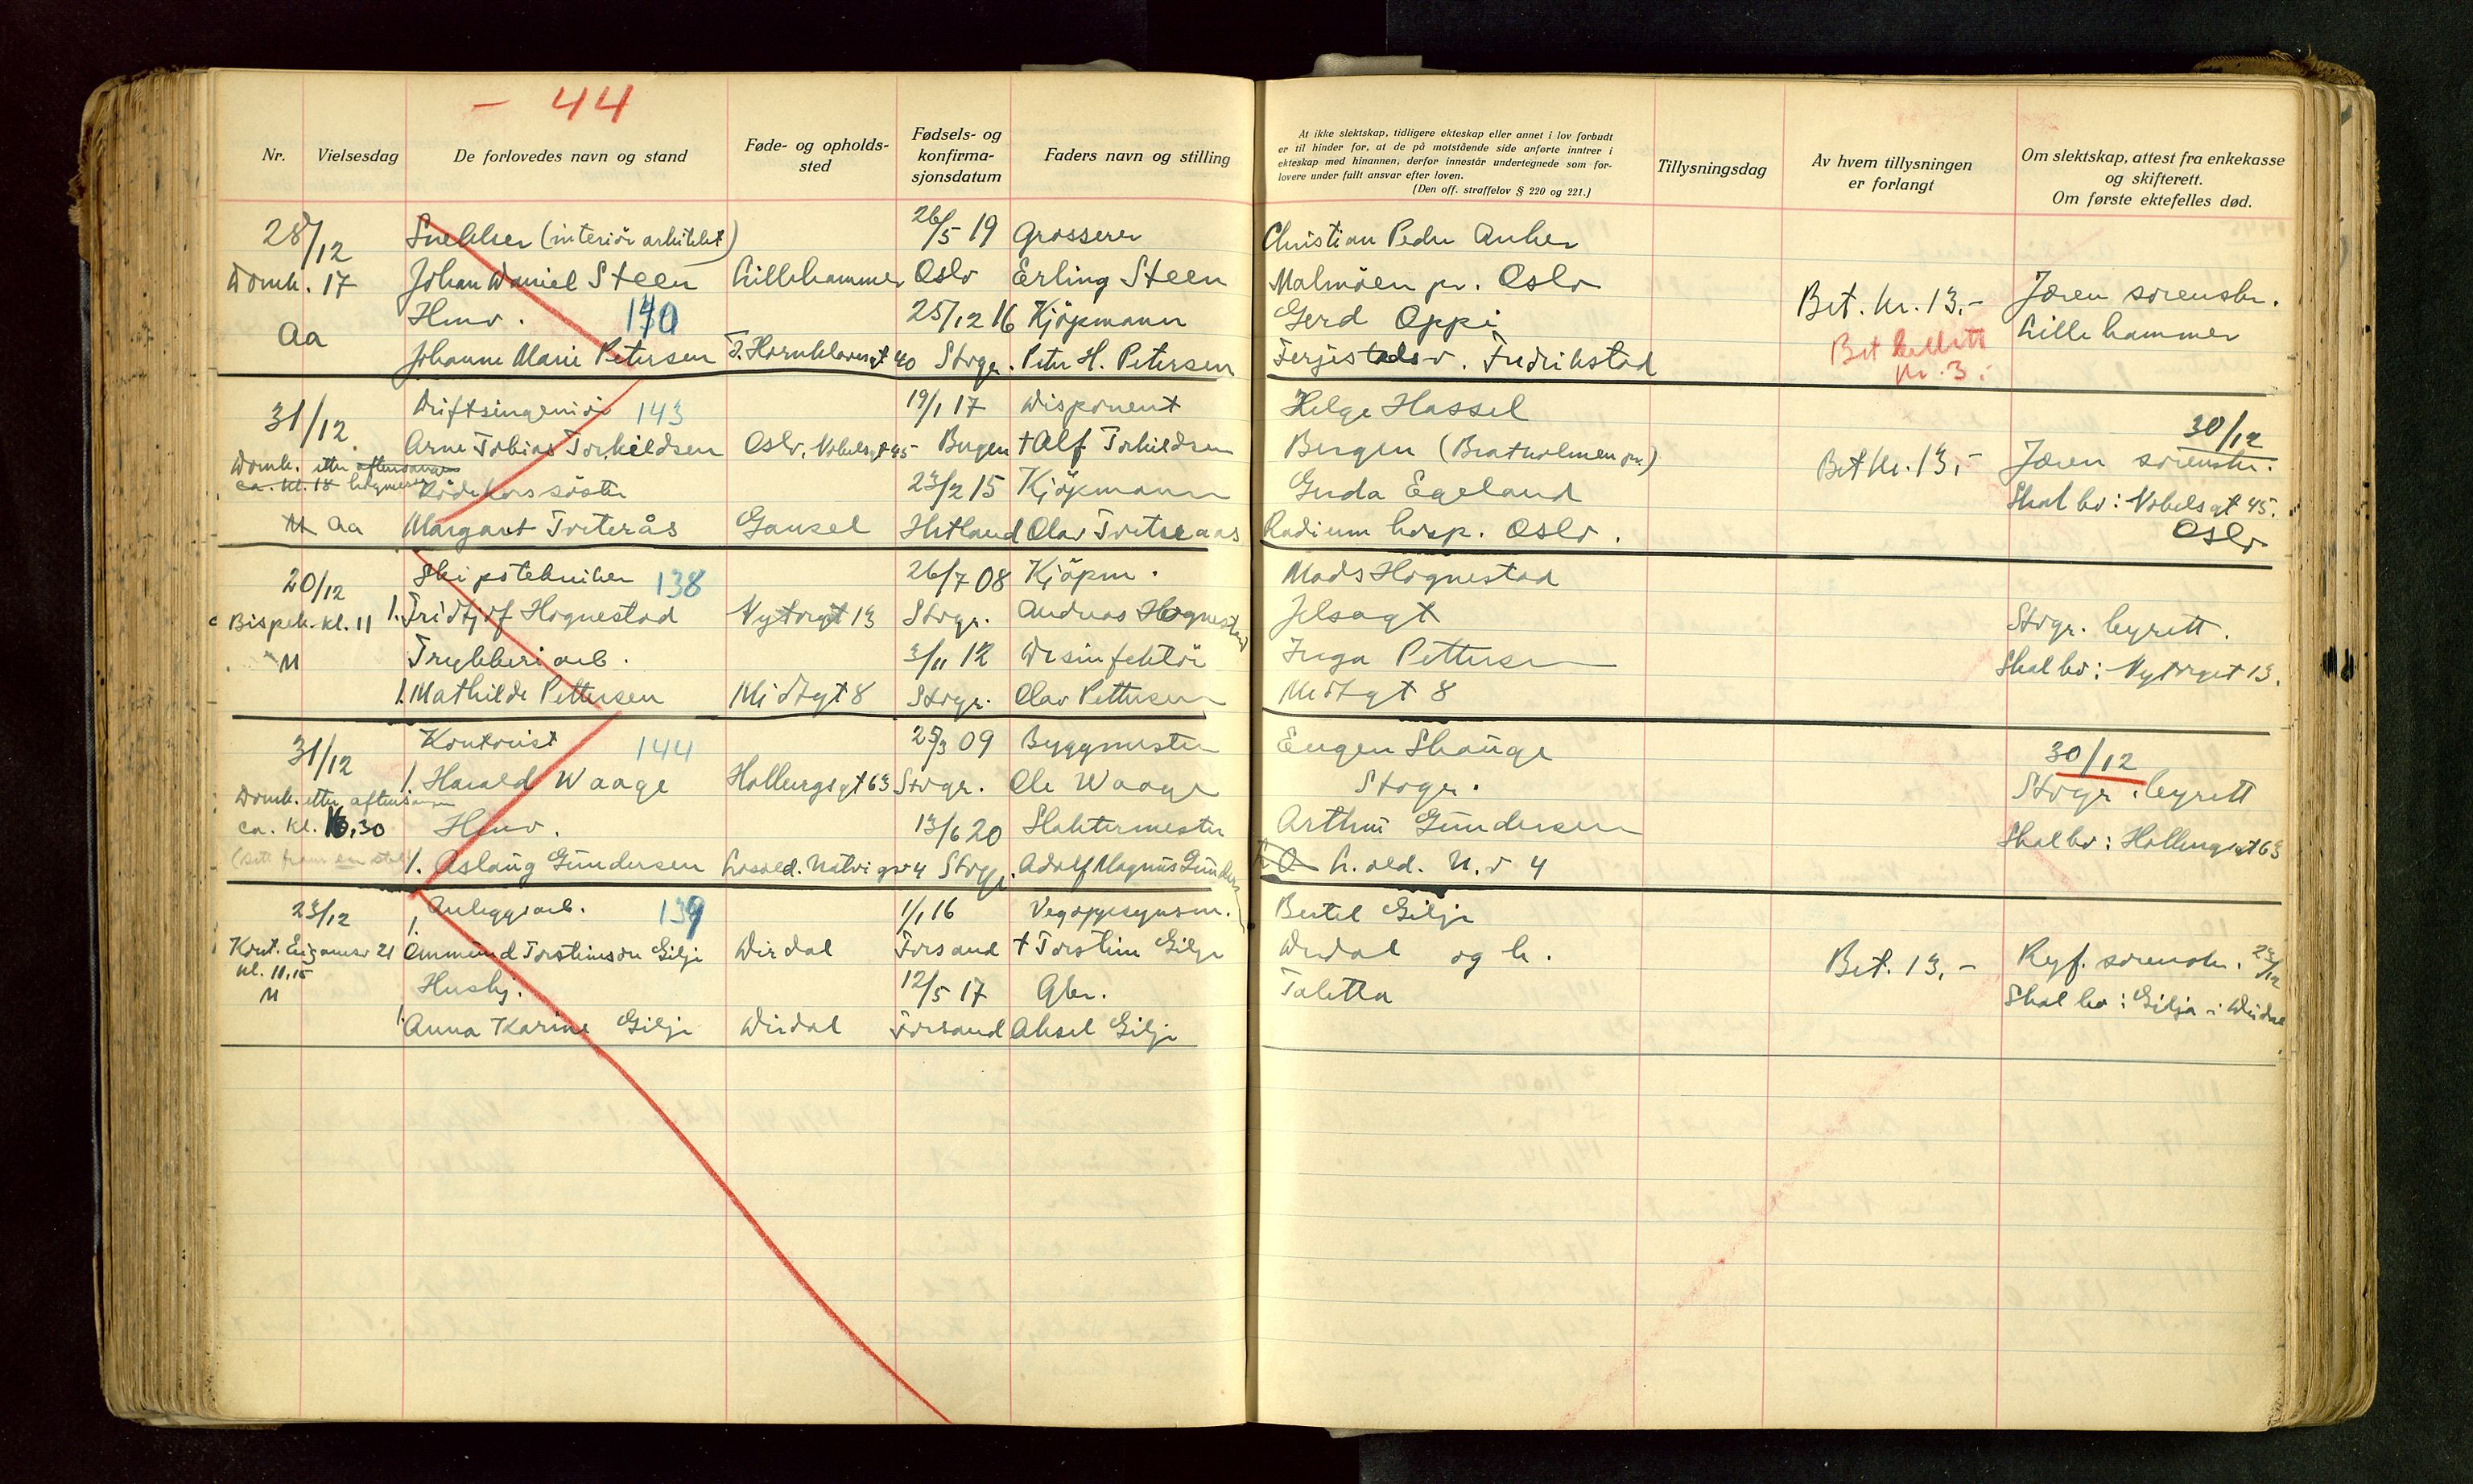 - 44
Nr. Vielsesdag De forlovedes navn og stand Føde- og opholds-sted Fødsels- og konfirma-sjonsdatum Faders navn og stilling
At ikke slektskap, tidligere ekteskap eller annet i lov forbudt
er til hinder for, at de på motstående side anførte inntrer i
ekteskap med hinannen, derfor innestår undertegnede som for-
lovere under fullt ansvar efter loven.
(Den off. straffelov § 220 og 221.)
Tillysningsdag
Av hvem tillysningen
er forlangt
Om slektskap, attest fra enkekasse
og skifterett.
Om første ektefelles død.
28/12 Snekker (interiör arkitekt) 26/5 19 Grosserer Christian Peder Anker
Domk. 17 Johan Daniel Steen Lillehammer Oslo Erling Steen Malmöen pr. Oslo
Hmv. 140 25/12 16 Kjöpmann Gerd Oppi Bet. kr. 13.- Jæren sorenskr.
Aa Johanne Marie Petersen T. Hornkloves gt 40 Stvgr. Peter H. Petersen Ferjestedsv. Fredrikstad Lillehammer
Bet
kr. 3.-
31/12 Driftsingeniör 143 19/1 17 Disponent Helge Hassel 30/12
Domk. etter aftensangen Arne Tobias Torkildsen Oslo, Nobelsgt 45 Bergen † Alf Torkildsen Bergen (Bratholmen pr.) Bet kr. 13,- Jæren sorenskr.
ca. kl. 18 högmesse Rödekorssöster 23/2 15 Kjöpmann Gerda Egeland Skal bo: Nobelsgt 45.
M Aa Margaret Tveterås Gausel Hetland Olav Tveteraas Radium hosp. Oslo. Oslo
20/12 Skipstekniker 138 26/7 08 Kjöpm. Mads Hognestad
Bispek. kl. 11 1. Fridtjof Hognestad Nytorget 13 Stvgr. Andreas Hognestad Jelsagt Stvgr. byrett.
M Trykkeriarb. 3/11 12 Desinfektör Inga Pettersen Skal bo: Nytorget 13.
1. Mathilde Pettersen Midtgt 8 Stvgr. Olav Pettersen Midtgt 8
31/12 Kontorist 144 25/3 09 Byggmester Eugen Skauge 30/12
Domk. etter aftensangen 1. Harald Waage Holbergsgt 63 Stvgr. Ole Waage Stvgr. Stvgr. byrett
ca. kl. 16,30 Hmv. 13/6 20 Slaktermester Arthur Gundersen Skal bo: Holbergsgt 63
1. Aslaug Gundersen Natvigsv 4 Stvgr. Adolf Magnus Gundersen N. v 4
23/12 Anleggsarb. 139 1/1 16 Vegoppsynsm. Bertel Gilje
Kont. Eiganesv 21 1. Ommund Torsteinson Gilje Dirdal Forsand † Torstein Gilje Dirdal og h. Bet. 13,- Ryf. sorenskr. 23/12
kl. 11,15 Husbj. 12/5 17 Gbr. Taletta Skal bo: Gilja i Dirdal
M 1. Anna Karine Gilje Dirdal Forsand Aksel Gilje